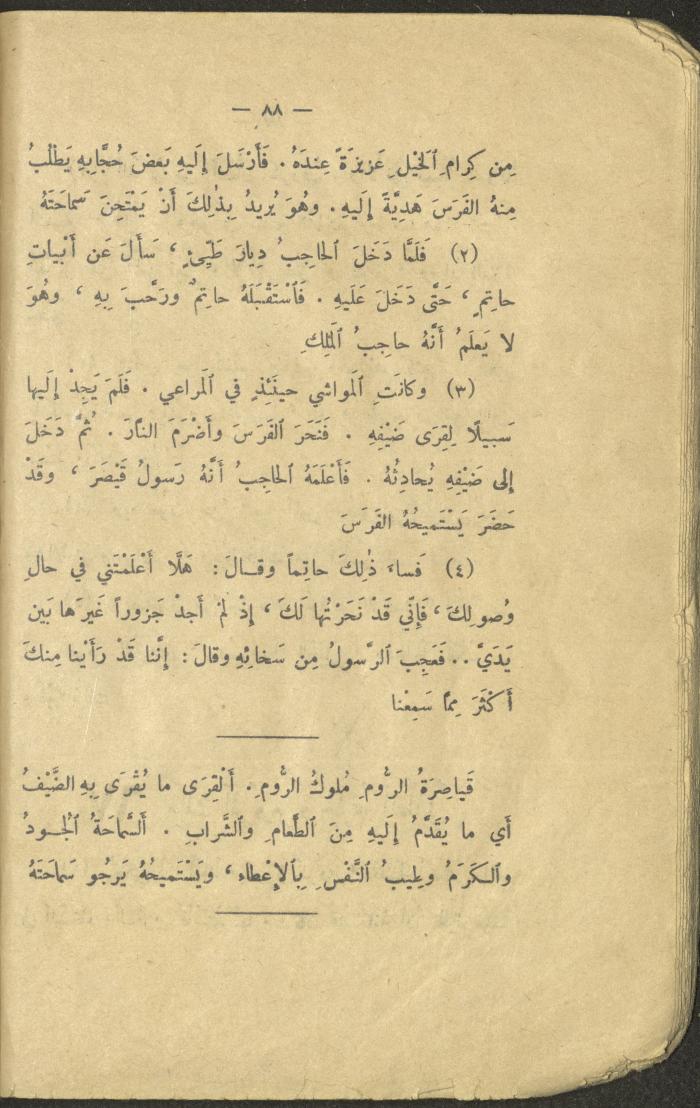 — ٨٨ —
مِن كِرامِ ٱلخَيْلِ عَزيزَةً عِندَهُ. فَأَرْسَلَ إِلَيهِ بَعضَ حُجَّابِهِ يَطْلُبُ
مِنهُ الفَرَسَ هَدِيَّةً إِلَيهِ. وهُوَ يُريدُ بِذٰلِكَ أَنْ يَمْتَحِنَ سَماحَتَهُ
(٢) فَلَمَّا دَخَلَ ٱلحاجِبُ دِيارَ طَيِّئٍ، سَأَلَ عَن أَبْياتِ
حاتِمٍ، حَتَّى دَخَلَ عَلَيهِ. فَٱسْتَقْبَلَهُ حاتِمٌ ورَحَّبَ بِهِ، وهُوَ
لا يَعلَمُ أَنَّهُ حاجِبُ ٱلمَلِكِ
(٣) وكانَتِ ٱلمَواشي حينَئِذٍ في ٱلمَراعي. فَلَمْ يَجِدْ إِلَيها
سَبيلًا لِقِرَى ضَيْفِهِ. فَنَحَرَ ٱلفَرَسَ وأَضْرَمَ النَّارَ. ثُمَّ دَخَلَ
إِلى ضَيْفِهِ يُحادِثُهُ. فَأَعْلَمَهُ ٱلحاجِبُ أَنَّهُ رَسولُ قَيْصَرَ، وقَدْ
حَضَرَ يَسْتَميحُهُ الفَرَسَ
(٤) فَساءَ ذٰلِكَ حاتِماً وقالَ: هَلَّا أَعْلَمْتَني في حالِ
وُصولِكَ، فَإِنّي قَدْ نَحَرْتُها لَكَ، إِذْ لَمْ أَجِدْ جَزوراً غَيرَها بَين
يَدَيَّ.. فَعَجِبَ ٱلرَّسولُ مِن سَخائِهِ وقالَ: إِنَّنا قَدْ رَأَيْنا مِنكَ
أَكْثَرَ مِمَّا سَمِعْنا
قَياصِرَةُ الرُّومِ مُلوكُ الرُّومِ. أَلْقِرَى ما يُقْرَى بِهِ الضَّيْفُ
أَي ما يُقَدَّمُ إِلَيهِ مِنَ ٱلطَّعامِ وٱلشَّرابِ. أَلسَّماحَةُ ٱلجُودُ
وٱلكَرَمُ وطِيبُ ٱلنَّفْسِ بِٱلإِعْطاءِ، ويَسْتَميحُهُ يَرجُو سَماحَتَهُ